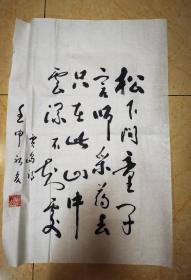 松下问童子
言师采药去
只在此山中
云深不知处
壬申